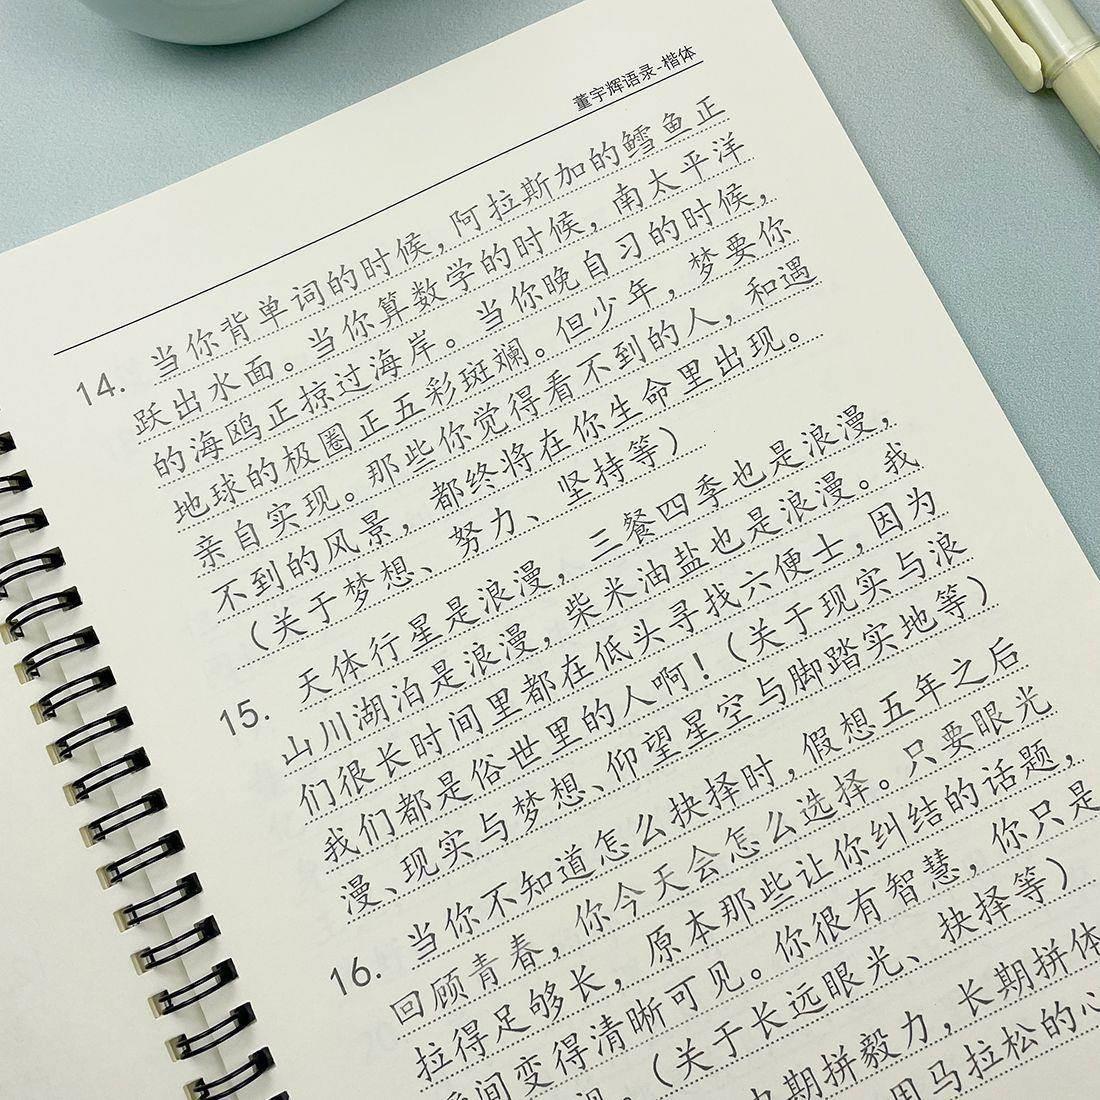 董宇辉语录-楷体
14. 当你背单词的时候，阿拉斯加的鳕鱼正
跃出水面。当你算数学的时候，南太平洋
的海鸥正掠过海岸。当你晚自习的时候，
地球的极圈正五彩斑斓。但少年，梦要你
亲自实现。那些你觉得看不到的人，和遇
不到的风景，都终将在你生命里出现。
（关于梦想、努力、坚持等）
15. 天体行星是浪漫，三餐四季也是浪漫，
山川湖泊是浪漫，柴米油盐也是浪漫。我
们很长时间里都在低头寻找六便士，因为
我们都是俗世里的人啊！（关于现实与浪
漫、现实与梦想、仰望星空与脚踏实地等）
16. 当你不知道怎么抉择时，假想五年之后
回顾青春，你今天会怎么选择。只要眼光
拉得足够长，原本那些让你纠结的话题，
瞬间变得清晰可见。你很有智慧，你只是
（关于长远眼光、抉择等）
期拼毅力，长期拼体
用马拉松的心